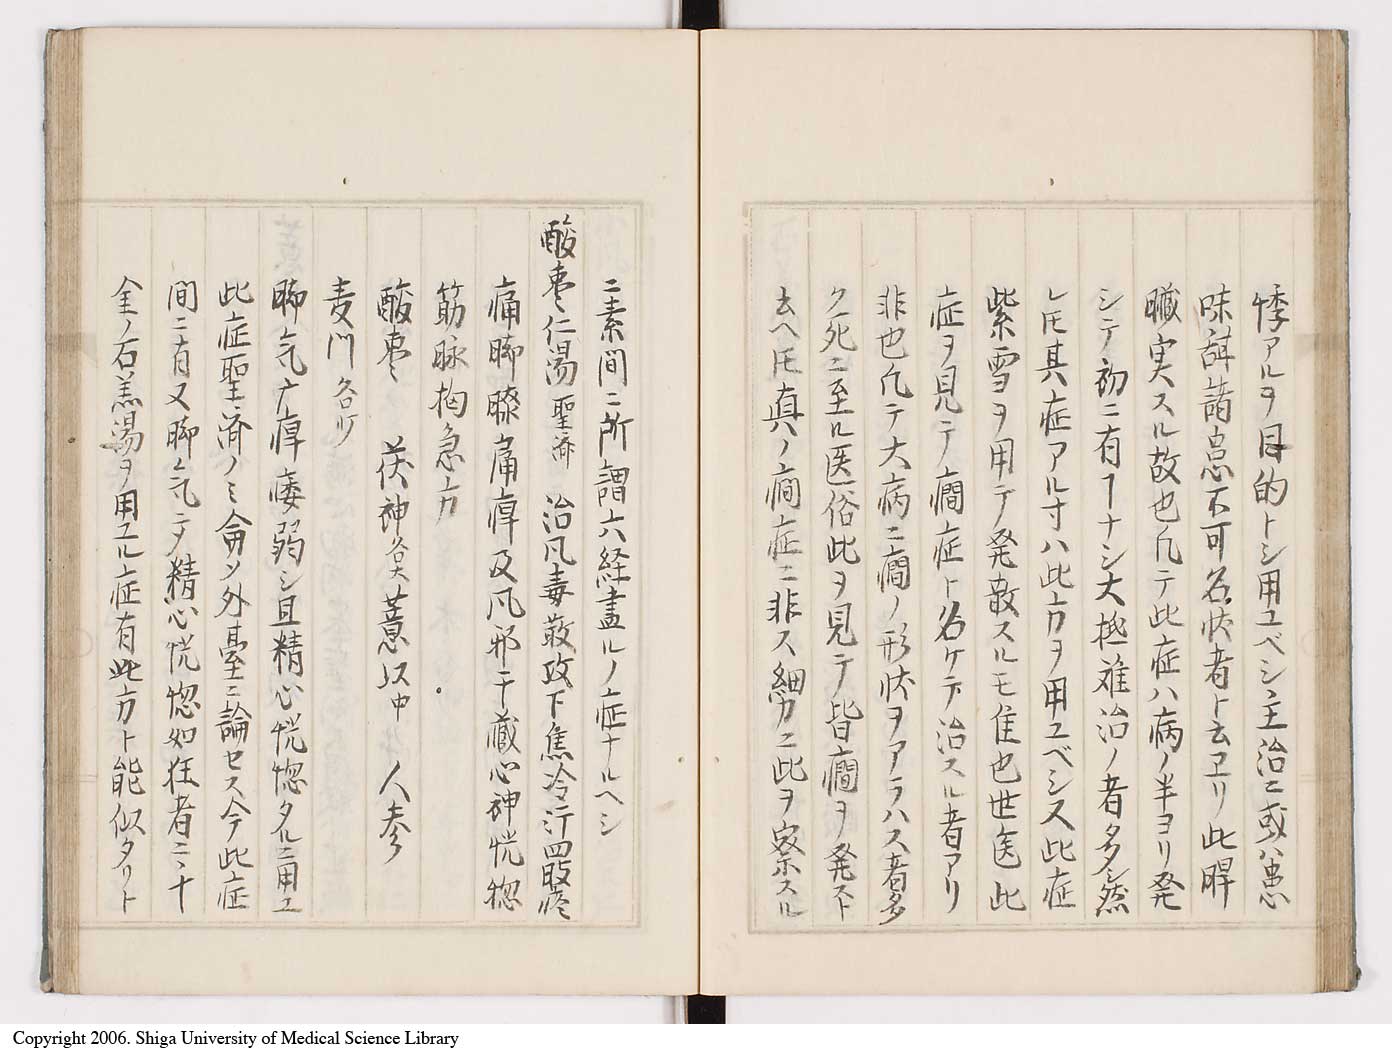 悸アルヲ目的トシ用ユベシ主治ニ或ハ患心
味諸患不可名状者ト云ヱリ此胛
臓実スル故也凡テ此症ハ病ノ半ヨリ発
シテ初ニ有ヿナシ大抵難治ノ者多シ然
レ𪜈其症アル寸ハ此方ヲ用ユベシ又此症
紫雪ヲ用テ発散スルモ佳也世医此
症ヲ見テ癇症ト名ケテ治スル者アリ
非也凡テ大病ニ癇ノ形状ヲアラハス者多
ク死ニ至ル医俗此ヲ見テ皆癇ヲ発スト
云ヘ𪜈真ノ癇症ニ非ス細カニ此ヲ察スル
ニ素問ニ所謂六経盡ルノ症ナルヘシ
酸棗仁湯 聖済 治風毒攻下焦冷汗四肢疼
痛脚膝痛痺及風邪干蔵心神恍惚
筋脉拘急方
酸棗 茯神 各大 薏苡中 人参
麦門 各小
脚気广痺痿弱シ且精心恍惚タルニ用ユ
此症聖済ノミ侖ソ外臺ニ論セス今此症
間ニ有又脚気ニテ精心恍惚如狂者ニ十
全ノ石羔湯ヲ用ユル症有此方ト能似タリト
Copyright 2006. Shiga University of Medical Science Library